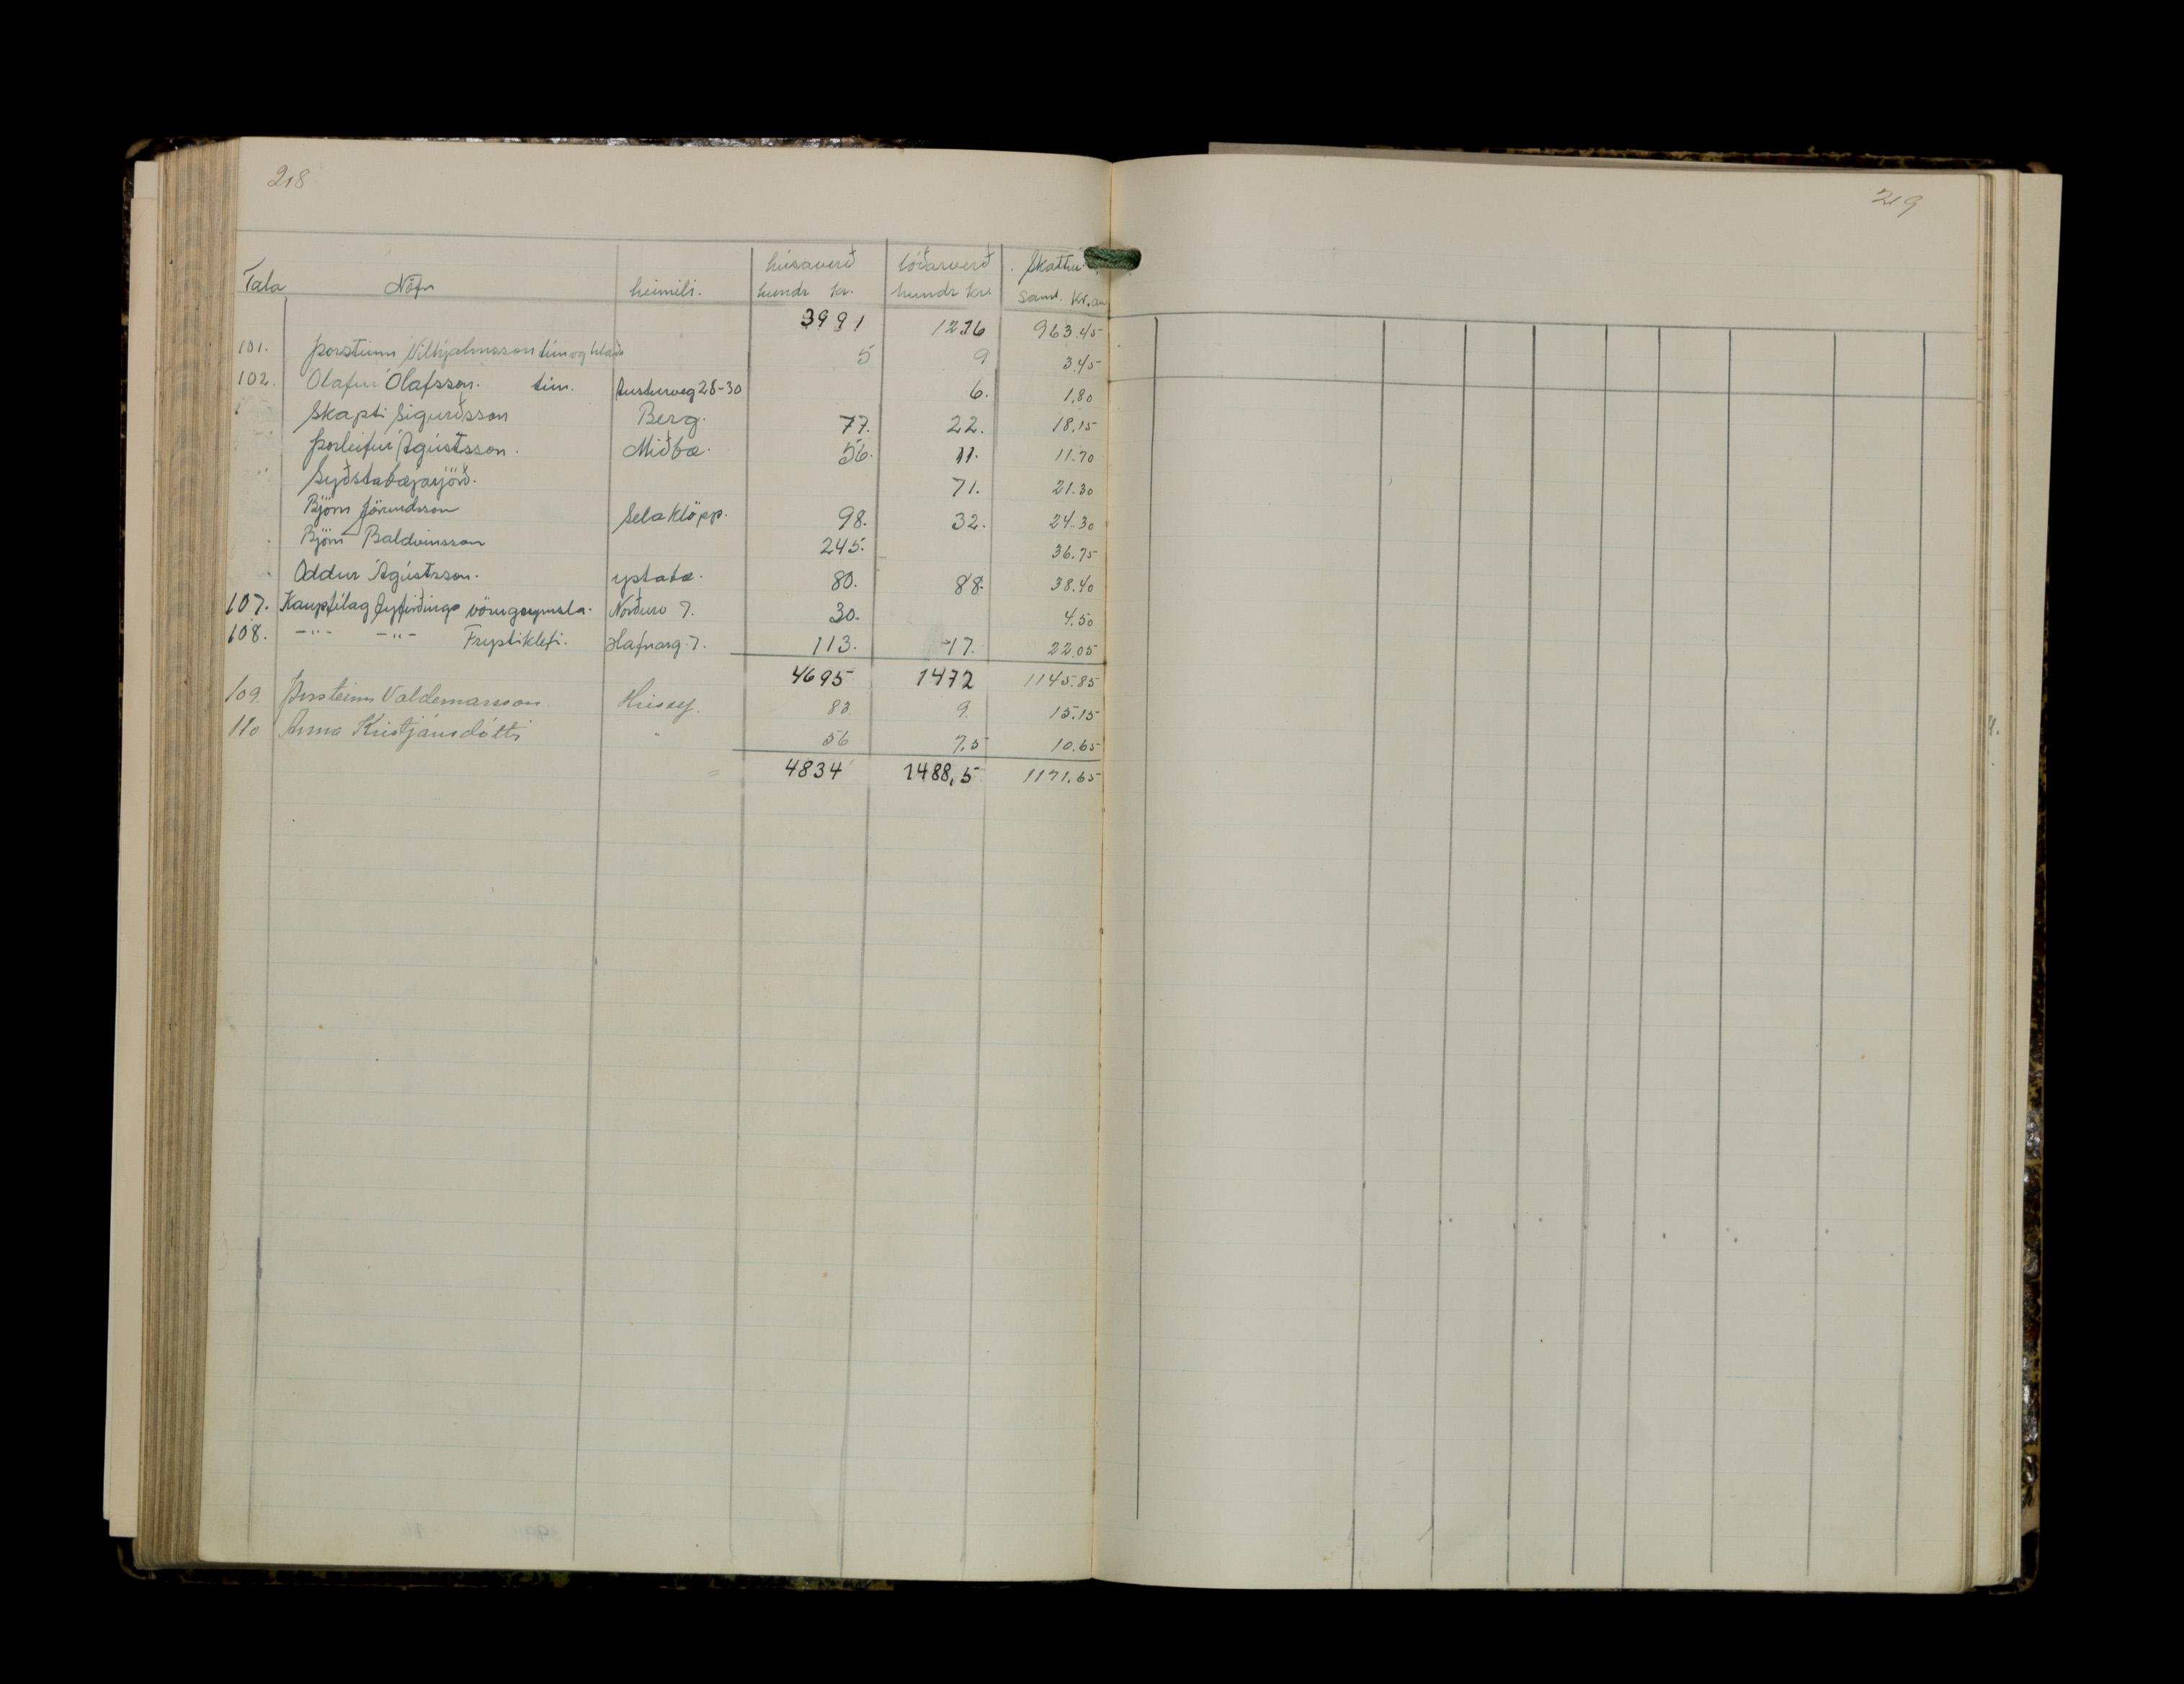 218
219
húsaverð lóðarverð Skattur
Tala Nöfn heimili. hundr kr. hundr kr. Saml. Kr. au
3991 1216 963.45
101. Þorsteinn Vilhjálmsson tún og 5 9 3.45
102. Ólafur Ólafsson. tún. Austurveg 28-30 6. 1.80
Skapti Sigurðsson Berg. 77. 22. 18.15
Þorleifur Ágústsson. Miðbæ. 56. 11. 11.70
Syðstabæjarjörð. 71. 21.30
Björn Jörundsson Selaklöpp. 98. 32. 24.30
Björn Baldvinsson 245. 36.75
Oddur Ágústsson. ystabæ. 80. 88. 38.40
107. Kaupfélag Eyfirðinga vörugeymsla. Norðurv 7. 30. 4.50
108. -"- -"- Frystiklefi. Hafnarg. 7. 113. 17. 22.05
4695 1472 1145.85
109. Þorsteinn Valdemarsson. Hrísey. 83. 9. 15.15
110 Anna Kristjánsdóttir " 56 7.5 10.65
= 4834 1488,5 1171.65